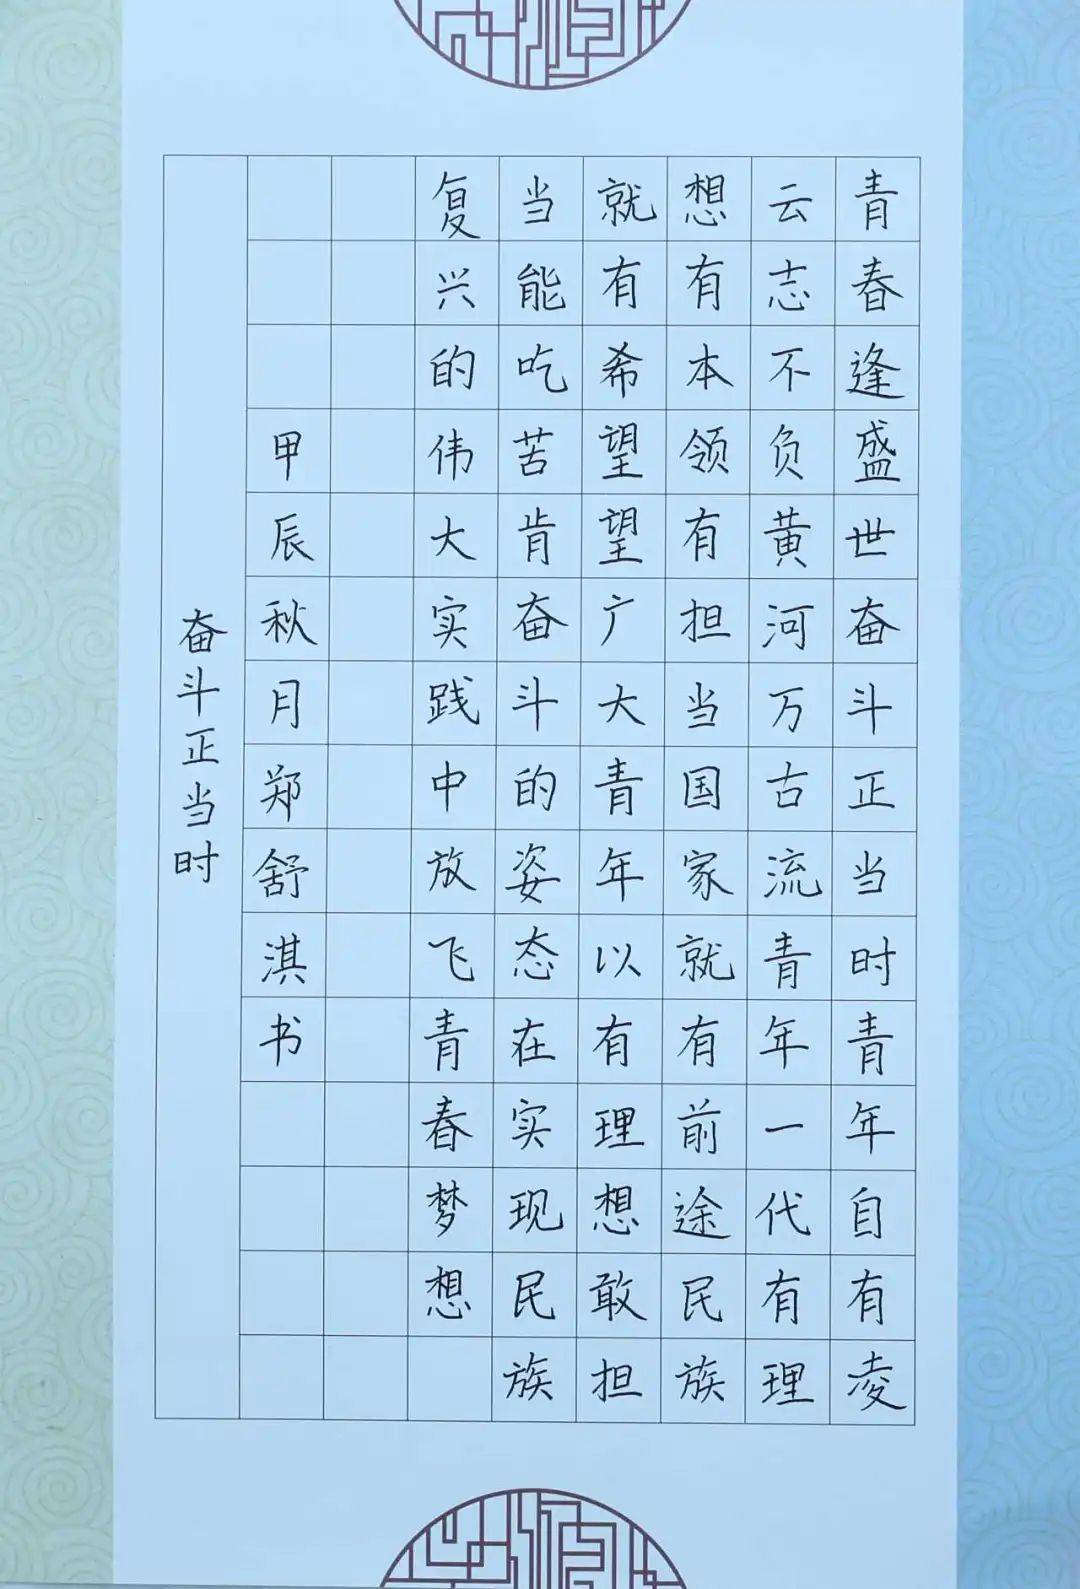 青春逢盛世奋斗正当时青年自有凌
云志不负黄河万古流青年一代有理
想有本领有担当国家就有前途民族
就有希望望广大青年以有理想敢担
当能吃苦肯奋斗的姿态在实现民族
复兴的伟大实践中放飞青春梦想
甲辰秋月郑舒淇书
奋斗正当时